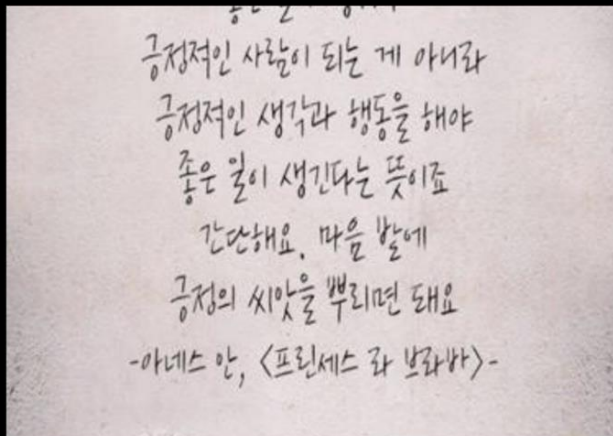 긍정적인 사람이 되는 게 아니라
긍정적인 생각과 행동을 해야
좋은 일이 생긴다는 뜻이죠
간단해요. 마음 밭에
긍정의 씨앗을 뿌리면 돼요
-아네스 안, <프린세스 라 브라바>-